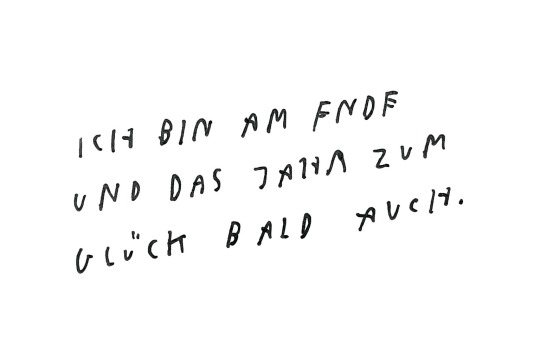 ICH BIN AM ENDE
UND DAS JAHR ZUM
GLÜCK BALD AUCH.